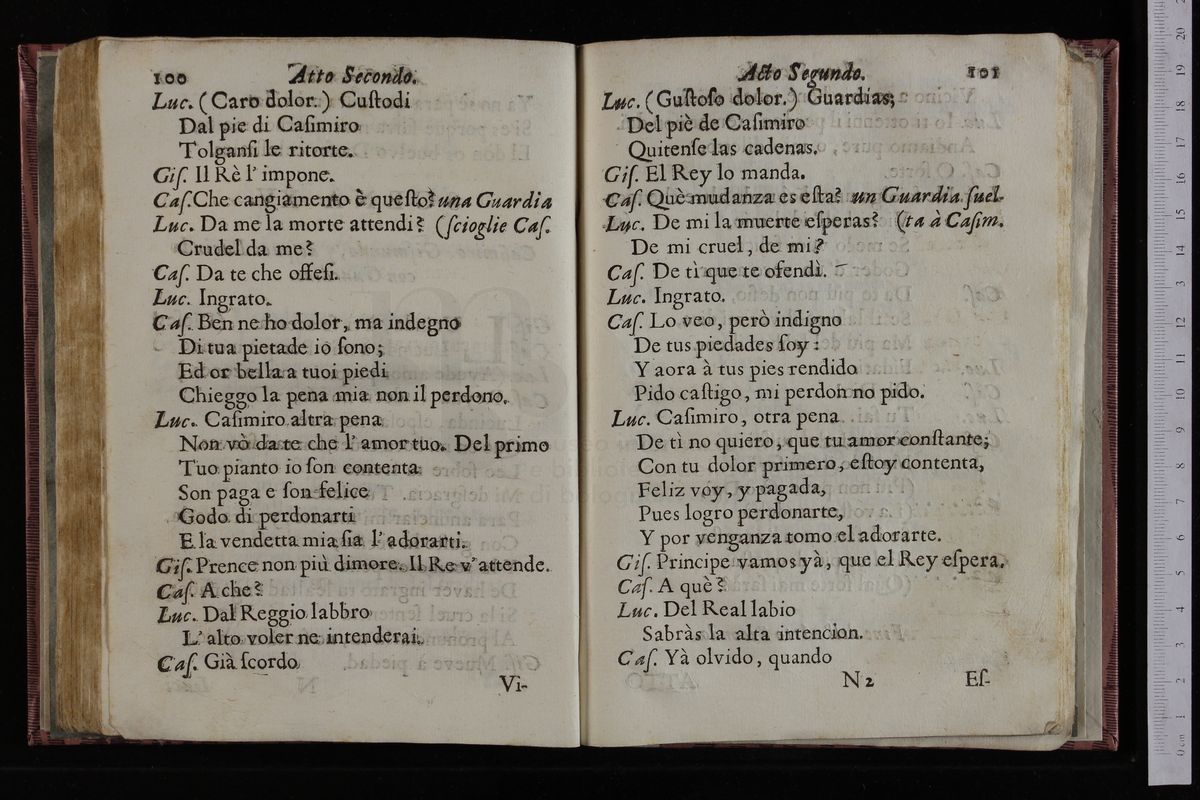 100 Atto Secondo.
Luc. (Caro dolor.) Cuſtodi
Dal pie di Caſimiro
Tolganſi le ritorte.
Giſ. Il Rè l' impone.
Caſ. Che cangiamento è queſto? una Guardia
Luc. Da me la morte attendi? (ſcioglie Caſ.
Crudel da me?
Caſ. Da te che offeſi.
Luc. Ingrato.
Caſ. Ben ne ho dolor, ma indegno
Di tua pietade io ſono;
Ed or bella a tuoi piedi
Chieggo la pena mia non il perdono.
Luc. Caſimiro altra pena
Non vò da te che l' amor tuo. Del primo
Tuo pianto io ſon contenta
Son paga e ſon felice
Godo di perdonarti
E la vendetta mia ſia l' adorarti.
Giſ. Prence non più dimore. Il Re v' attende.
Caſ. A che?
Luc. Dal Reggio labbro
L' alto voler ne intenderai.
Caſ. Già ſcordo
Vi-
Acto Segundo. 101
Luc. (Guſtoſo dolor.) Guardias;
Del piè de Caſimiro
Quitenſe las cadenas.
Giſ. El Rey lo manda.
Caſ. Què mudanza es eſta? un Guardia ſuel-
Luc. De mi la muerte eſperas? (ta à Caſim.
De mi cruel, de mi?
Caſ. De tì que te ofendì.
Luc. Ingrato.
Caſ. Lo veo, però indigno
De tus piedades ſoy:
Y aora à tus pies rendido
Pido caſtigo, mi perdon no pido.
Luc. Caſimiro, otra pena
De tì no quiero, que tu amor conſtante;
Con tu dolor primero, eſtoy contenta,
Feliz voy, y pagada,
Pues logro perdonarte,
Y por venganza tomo el adorarte.
Giſ. Principe vamos yà, que el Rey eſpera.
Caſ. A què?
Luc. Del Real labio
Sabràs la alta intencion.
Caſ. Yà olvido, quando
N 2 Eſ-